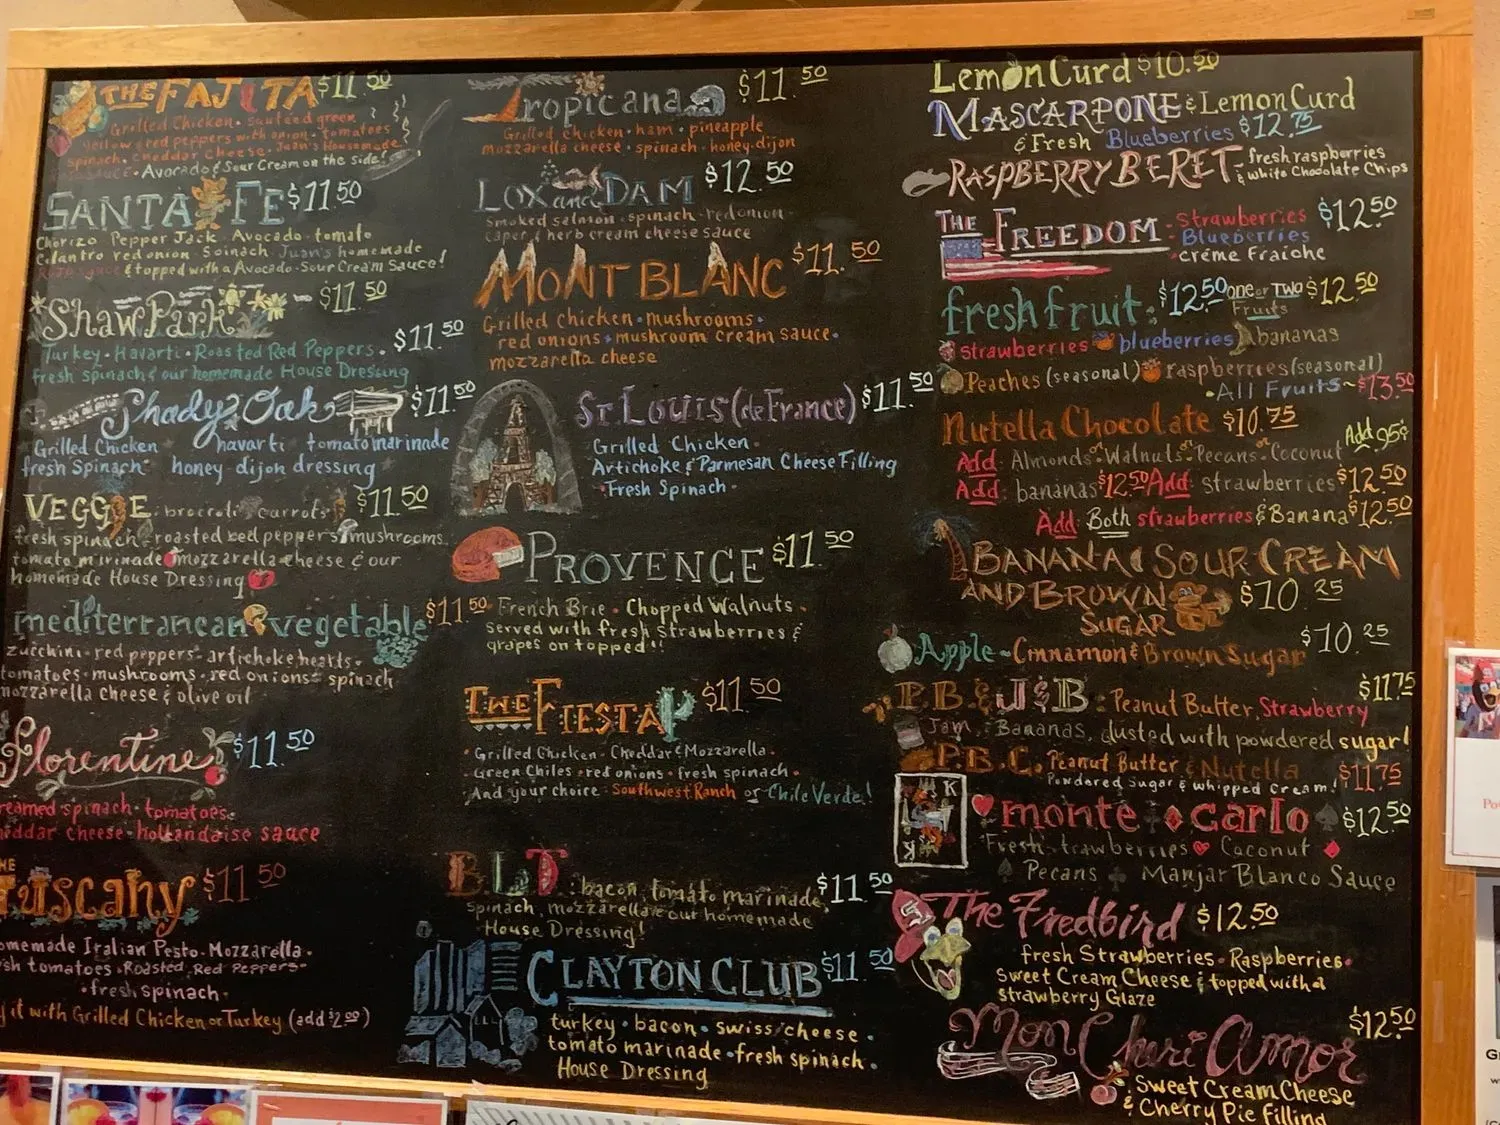 THE FAJITA $11.50
Grilled Chicken • sauteed green
yellow & red peppers with onion • tomatoes
spinach • cheddar cheese • Juan's Homemade
Avocado & Sour Cream on the side!
SANTA FE $11.50
Chorizo Pepper Jack Avocado • tomato
Cilantro red onion Spinach Juan's homemade
& topped with a Avocado-Sour Cream Sauce!
Shaw Park ~ $11.50
Turkey • Havarti • Roasted Red Peppers • $11.50
fresh spinach & our homemade House Dressing
Shady Oak $11.50
Grilled Chicken havarti tomato marinade
fresh Spinach honey dijon dressing
VEGGIE broccoli carrots $11.50
fresh spinach roasted red peppers mushrooms
tomato marinade mozzarella cheese & our
homemade House Dressing
mediterranean vegetable $11.50
zucchini • red peppers • artichoke hearts •
tomatoes • mushrooms • red onions • spinach
mozzarella cheese & olive oil
Florentine $11.50
reamed spinach • tomatoes
heddar cheese • hollandaise sauce
Tuscany $11.50
omemade Italian Pesto • Mozzarella •
sh tomatoes • Roasted Red Peppers •
• fresh spinach •
y it with Grilled Chicken or Turkey (add $2.00)
Tropicana $11.50
Grilled chicken • ham • pineapple
mozzarella cheese • spinach • honey-dijon
LOX and DAM $12.50
smoked salmon • spinach • red onion
caper & herb cream cheese sauce
MONT BLANC $11.50
Grilled chicken • mushrooms •
red onions • mushroom cream sauce •
mozzarella cheese
St. Louis (de France) $11.50
Grilled Chicken •
Artichoke & Parmesan Cheese Filling
• Fresh Spinach •
PROVENCE $11.50
French Brie • Chopped Walnuts •
served with fresh strawberries &
grapes on topped!!
THE FIESTA $11.50
• Grilled Chicken • Cheddar & Mozzarella •
• Green Chiles • red onions • fresh spinach •
And your choice: Southwest Ranch or Chile Verde!
B.L.T. : bacon, tomato marinade, $11.50
spinach, mozzarella & our homemade
House Dressing!
CLAYTON CLUB $11.50
turkey • bacon • swiss cheese •
tomato marinade • fresh spinach •
House Dressing
Lemon Curd $10.50
MASCARPONE & Lemon Curd
& Fresh Blueberries $12.75
RASPBERRY BERET - fresh raspberries
& White Chocolate Chips
THE FREEDOM - Strawberries $12.50
Blueberries
créme Fraiche
fresh fruit: $12.50 one or Two $12.50
Fruits
strawberries blueberries bananas
Peaches (seasonal) raspberries (seasonal)
• All Fruits ~ $13.50
Nutella Chocolate $10.75
Add: Almonds or Walnuts or Pecans or Coconut Add 95¢
Add: bananas $12.50 Add: strawberries $12.50
Add Both strawberries & Banana $12.50
BANANA & SOUR CREAM
AND BROWN $10.25
SUGAR
Apple ~ Cinnamon & Brown Sugar $10.25
P.B. & J & B : Peanut Butter, Strawberry $11.75
Jam, Bananas, dusted with powdered sugar!
P.B.C. Peanut Butter & Nutella $11.75
Powdered Sugar & whipped cream!
K
monte carlo $12.50
Fresh strawberries Coconut
Pecans Manjar Blanco Sauce
The Fredbird $12.50
fresh Strawberries • Raspberries •
Sweet Cream Cheese & topped with a
strawberry Glaze
Mon Cheri Amor $12.50
Sweet Cream Cheese
& Cherry Pie Filling